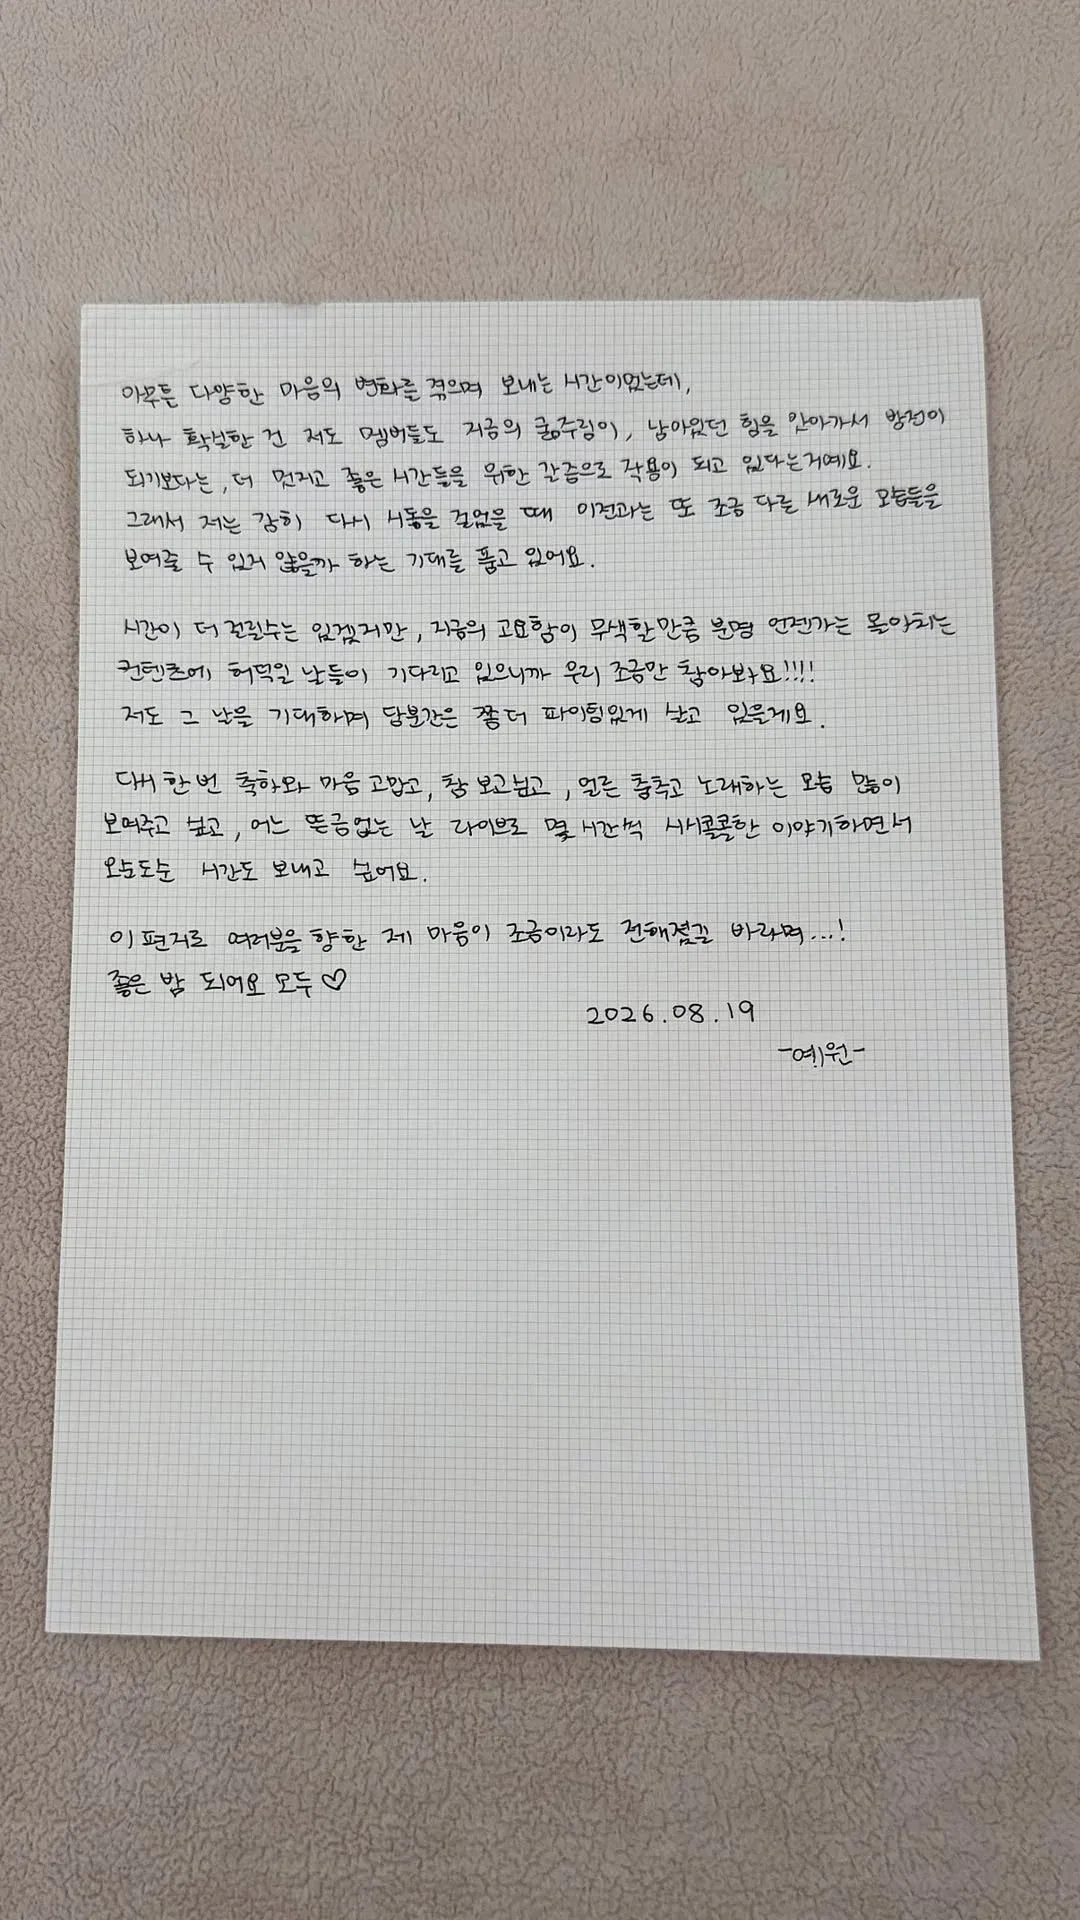 아무튼 다양한 마음의 변화를 겪으며 보내는 시간이었는데,
하나 확실한 건 저도 멤버들도 지금의 굶주림이, 남아있던 힘을 앗아가서 방전이
되기보다는, 더 멋지고 좋은 시간들을 위한 갈증으로 작용이 되고 있다는거예요.
그래서 저는 감히 다시 시동을 걸었을 때 이전과는 또 조금 다른 새로운 모습들을
보여줄 수 있지 않을까 하는 기대를 품고 있어요.
시간이 더 걸릴수는 있겠지만, 지금의 고요함이 무색할만큼 분명 언젠가는 몰아치는
컨텐츠에 허덕일 날들이 기다리고 있으니까 우리 조금만 참아봐요!!!!
저도 그 날을 기대하며 당분간은 쫌 더 파이팅있게 살고 있을게요.
다시 한 번 축하와 마음 고맙고, 참 보고싶고, 얼른 춤추고 노래하는 모습 많이
보여주고 싶고, 어느 뜬금없는 날 라이브로 몇 시간씩 시시콜콜한 이야기하면서
오순도순 시간도 보내고 싶어요.
이 편지로 여러분을 향한 제 마음이 조금이라도 전해졌길 바라며...!
좋은 밤 되어요 모두♡
2026.08.19
-예원-